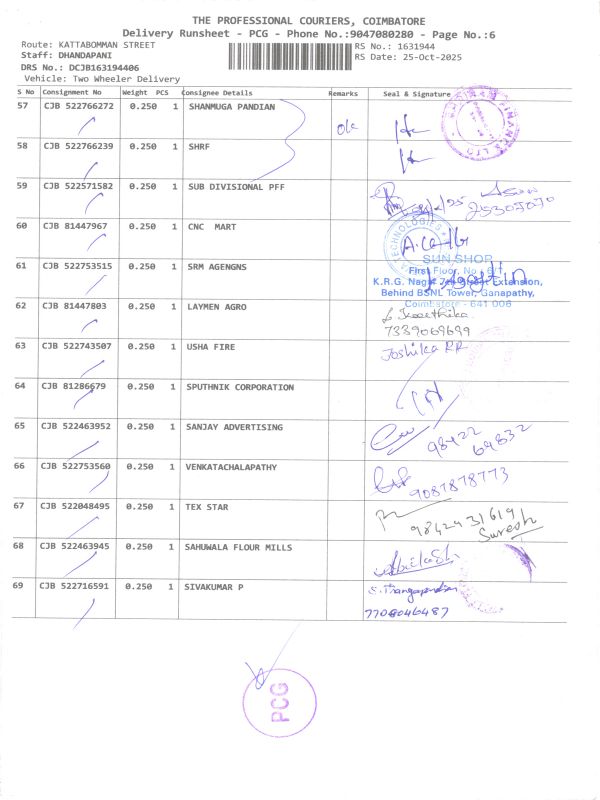 THE PROFESSIONAL COURIERS, COIMBATORE
Delivery Runsheet - PCG - Phone No.:9047080280 - Page No.:6
Route: KATTABOMMAN STREET
RS No.: 1631944
Staff: DHANDAPANI
RS Date: 25-Oct-2025
DRS No.: DCJB163194406
Vehicle: Two Wheeler Delivery
S No Consignment No Weight PCS Consignee Details Remarks Seal & Signature
57 CJB 522766272 0.250 1 SHANMUGA PANDIAN ok
58 CJB 522766239 0.250 1 SHRF
59 CJB 522571582 0.250 1 SUB DIVISIONAL PFF
60 CJB 81447967 0.250 1 CNC MART
TECHNOLOGIES
SUN SHOP
61 CJB 522753515 0.250 1 SRM AGENGNS
First Floor, No
K.R.G. Nagar Extension,
Behind BSNL Tower, Ganapathy,
Coimbatore - 641 006
62 CJB 81447803 0.250 1 LAYMEN AGRO
7339069699
63 CJB 522743507 0.250 1 USHA FIRE Joshika RR
64 CJB 81286679 0.250 1 SPUTHNIK CORPORATION
65 CJB 522463952 0.250 1 SANJAY ADVERTISING 98422 64832
66 CJB 522753560 0.250 1 VENKATACHALAPATHY
9087878773
67 CJB 522048495 0.250 1 TEX STAR
9842931619
Suresh
68 CJB 522463945 0.250 1 SAHUWALA FLOUR MILLS
69 CJB 522716591 0.250 1 SIVAKUMAR P S. Thangapandian
7708046487
PCG